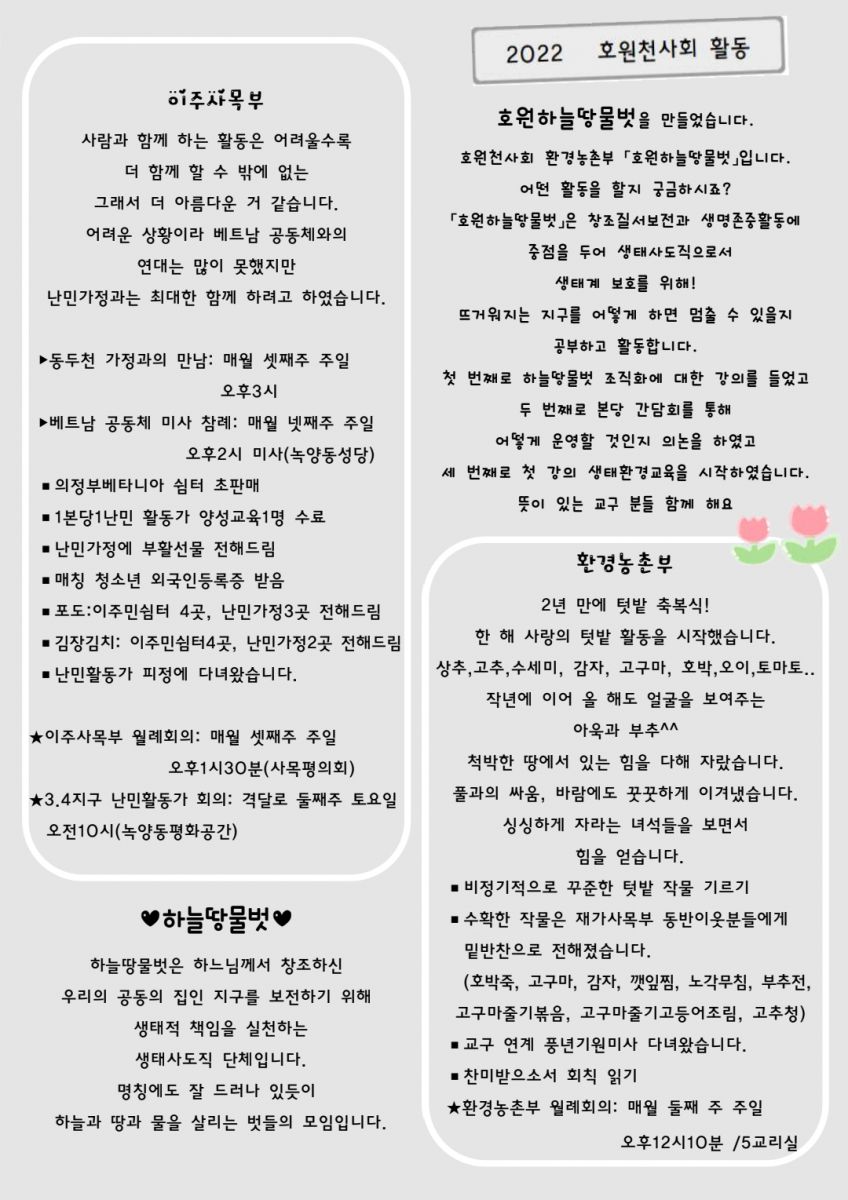 2022 호원천사회 활동
이주사목부
사람과 함께 하는 활동은 어려울수록
더 함께 할 수 밖에 없는
그래서 더 아름다운 거 같습니다.
어려운 상황이라 베트남 공동체와의
연대는 많이 못했지만
난민가정과는 최대한 함께 하려고 하였습니다.
▶동두천 가정과의 만남: 매월 셋째주 주일
오후3시
▶베트남 공동체 미사 참례: 매월 넷째주 주일
오후2시 미사(녹양동성당)
▪의정부베타니아 쉼터 초판매
▪1본당1난민 활동가 양성교육1명 수료
▪난민가정에 부활선물 전해드림
▪매칭 청소년 외국인등록증 받음
▪포도:이주민쉼터 4곳, 난민가정3곳 전해드림
▪김장김치: 이주민쉼터4곳, 난민가정2곳 전해드림
▪난민활동가 피정에 다녀왔습니다.
★이주사목부 월례회의: 매월 셋째주 주일
오후1시30분(사목평의회)
★3.4지구 난민활동가 회의: 격달로 둘째주 토요일
오전10시(녹양동평화공간)
♥하늘땅물벗♥
하늘땅물벗은 하느님께서 창조하신
우리의 공동의 집인 지구를 보전하기 위해
생태적 책임을 실천하는
생태사도직 단체입니다.
명칭에도 잘 드러나 있듯이
하늘과 땅과 물을 살리는 벗들의 모임입니다.
호원하늘땅물벗을 만들었습니다.
호원천사회 환경농촌부 「호원하늘땅물벗」입니다.
어떤 활동을 할지 궁금하시죠?
「호원하늘땅물벗」은 창조질서보전과 생명존중활동에
중점을 두어 생태사도직으로서
생태계 보호를 위해!
뜨거워지는 지구를 어떻게 하면 멈출 수 있을지
공부하고 활동합니다.
첫 번째로 하늘땅물벗 조직화에 대한 강의를 들었고
두 번째로 본당 간담회를 통해
어떻게 운영할 것인지 의논을 하였고
세 번째로 첫 강의 생태환경교육을 시작하였습니다.
뜻이 있는 교구 분들 함께 해요
환경농촌부
2년 만에 텃밭 축복식!
한 해 사랑의 텃밭 활동을 시작했습니다.
상추,고추,수세미, 감자, 고구마, 호박,오이,토마토..
작년에 이어 올 해도 얼굴을 보여주는
아욱과 부추^^
척박한 땅에서 있는 힘을 다해 자랐습니다.
풀과의 싸움, 바람에도 꿋꿋하게 이겨냈습니다.
싱싱하게 자라는 녀석들을 보면서
힘을 얻습니다.
▪비정기적으로 꾸준한 텃밭 작물 기르기
▪수확한 작물은 재가사목부 동반이웃분들에게
밑반찬으로 전해졌습니다.
(호박죽, 고구마, 감자, 깻잎찜, 노각무침, 부추전,
고구마줄기볶음, 고구마줄기고등어조림, 고추청)
▪교구 연계 풍년기원미사 다녀왔습니다.
▪찬미받으소서 회칙 읽기
★환경농촌부 월례회의: 매월 둘째 주 주일
오후12시10분 /5교리실